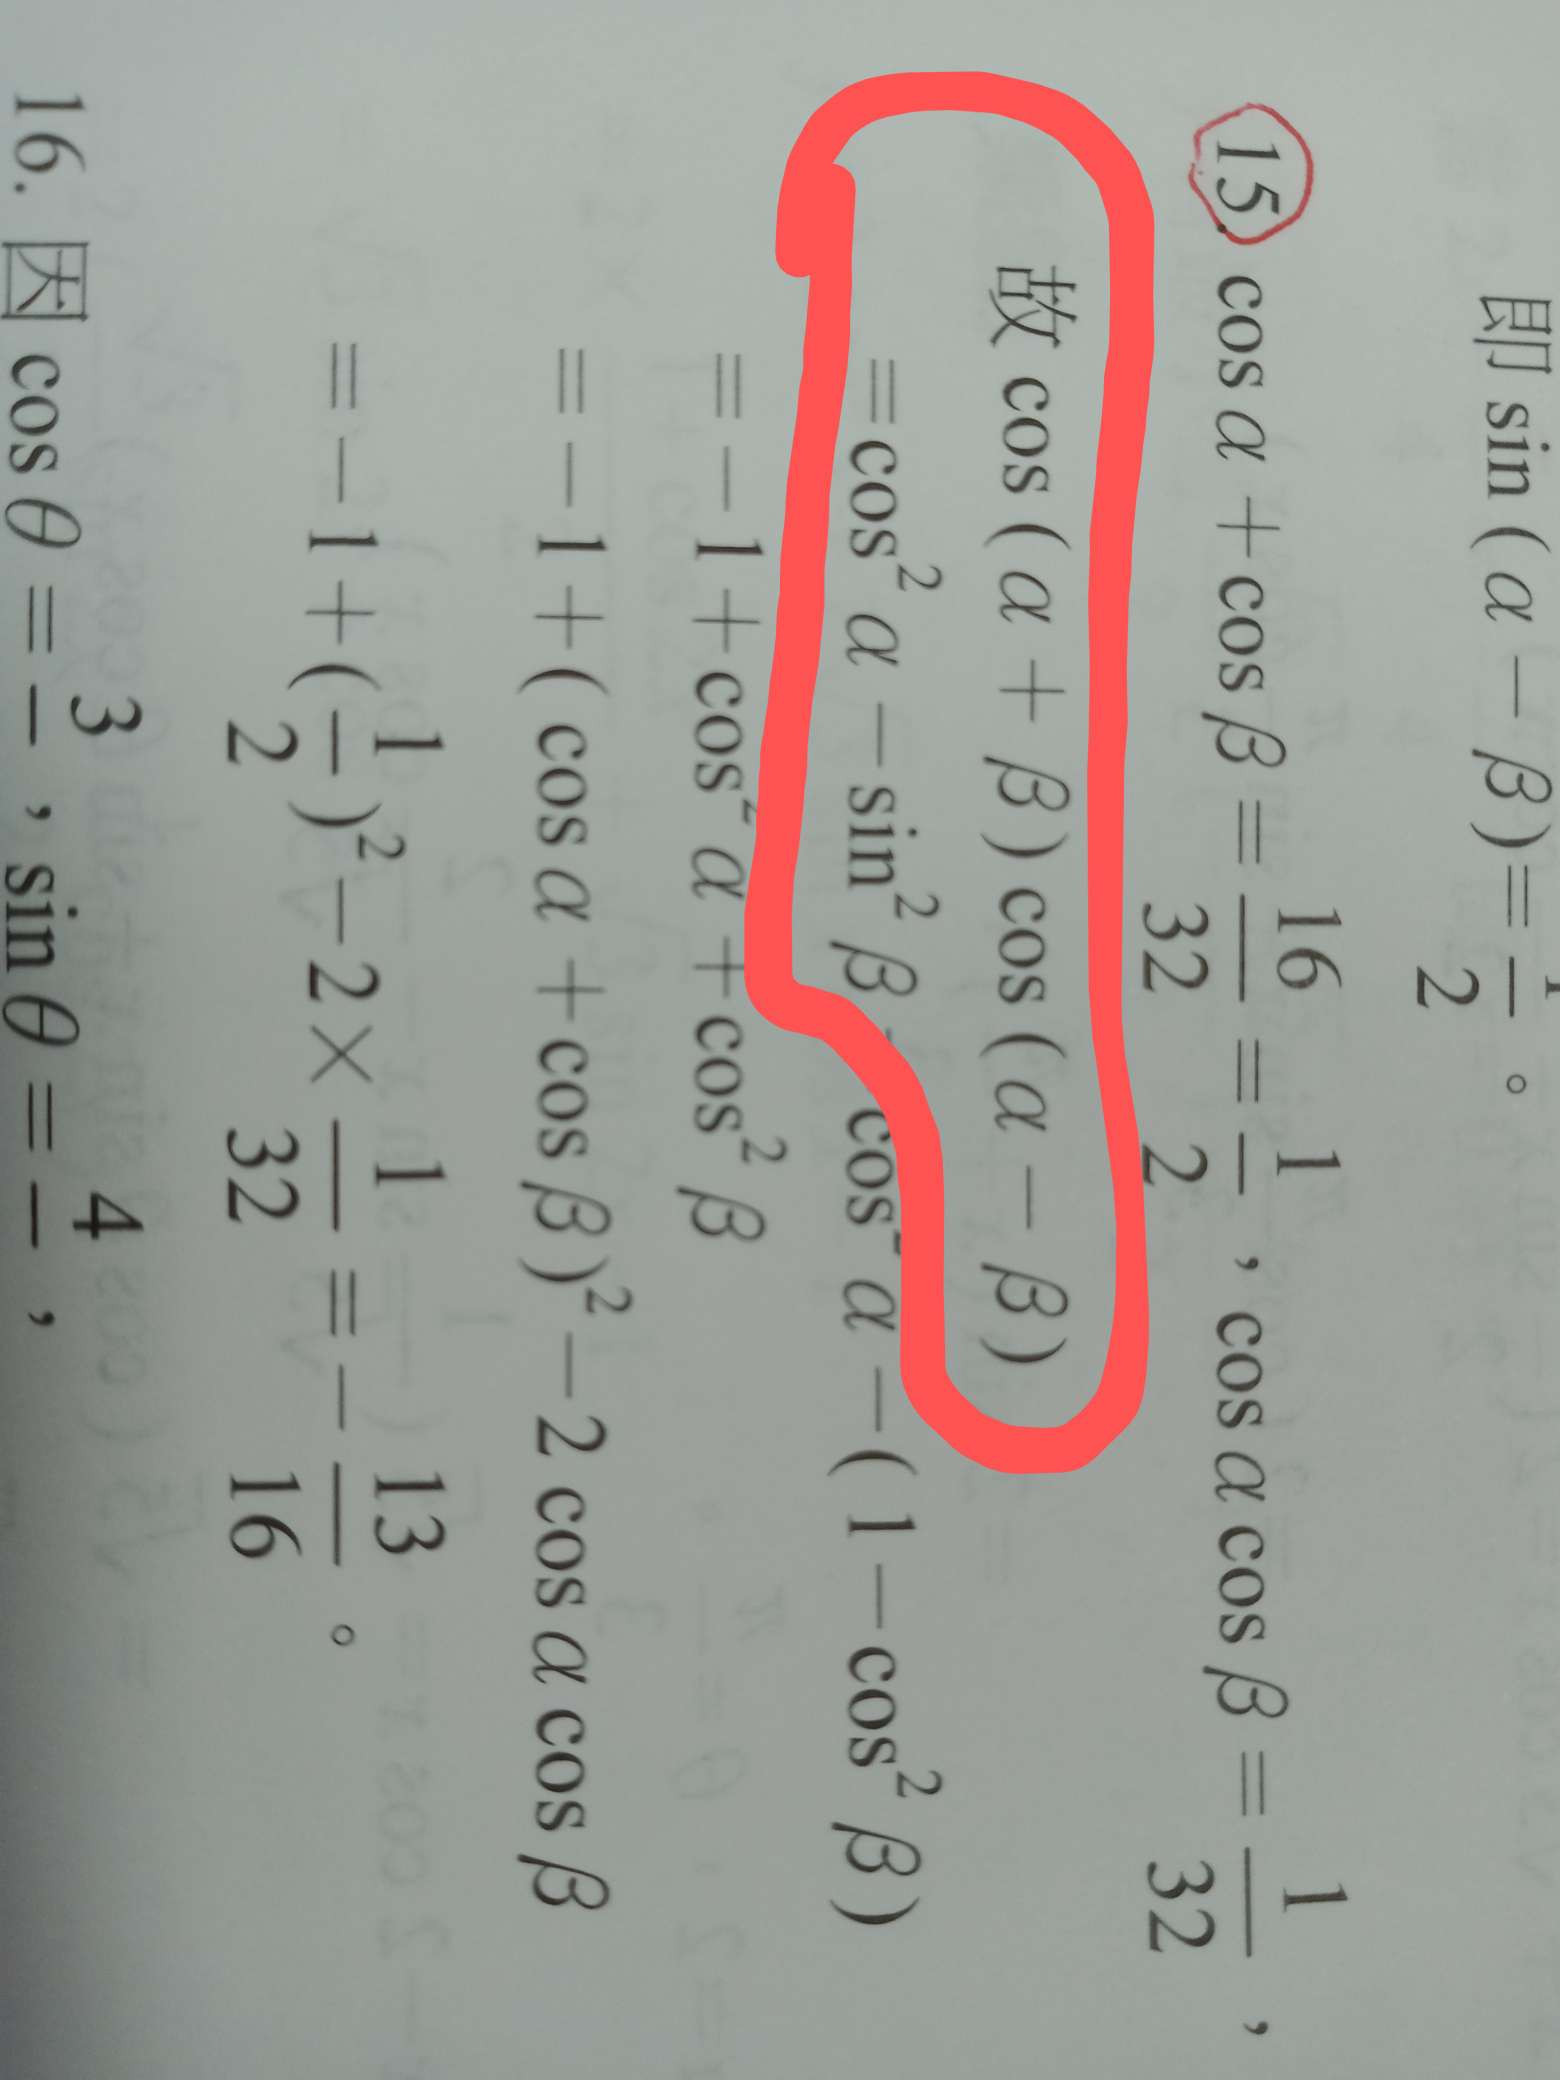 即 sin(α－β)=1/2。
15. cosα+cosβ=16/32=1/2，cosαcosβ=1/32，
故 cos(α+β)cos(α－β)
=cos²α－sin²β=cos²α－(1－cos²β)
=－1+cos²α+cos²β
=－1+(cosα+cosβ)²－2cosαcosβ
=－1+(1/2)²－2×1/32=－13/16。
16. 因 cosθ=3/，sinθ=4/，